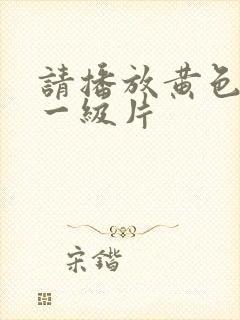 請播放黄色
一級片
宋鍇